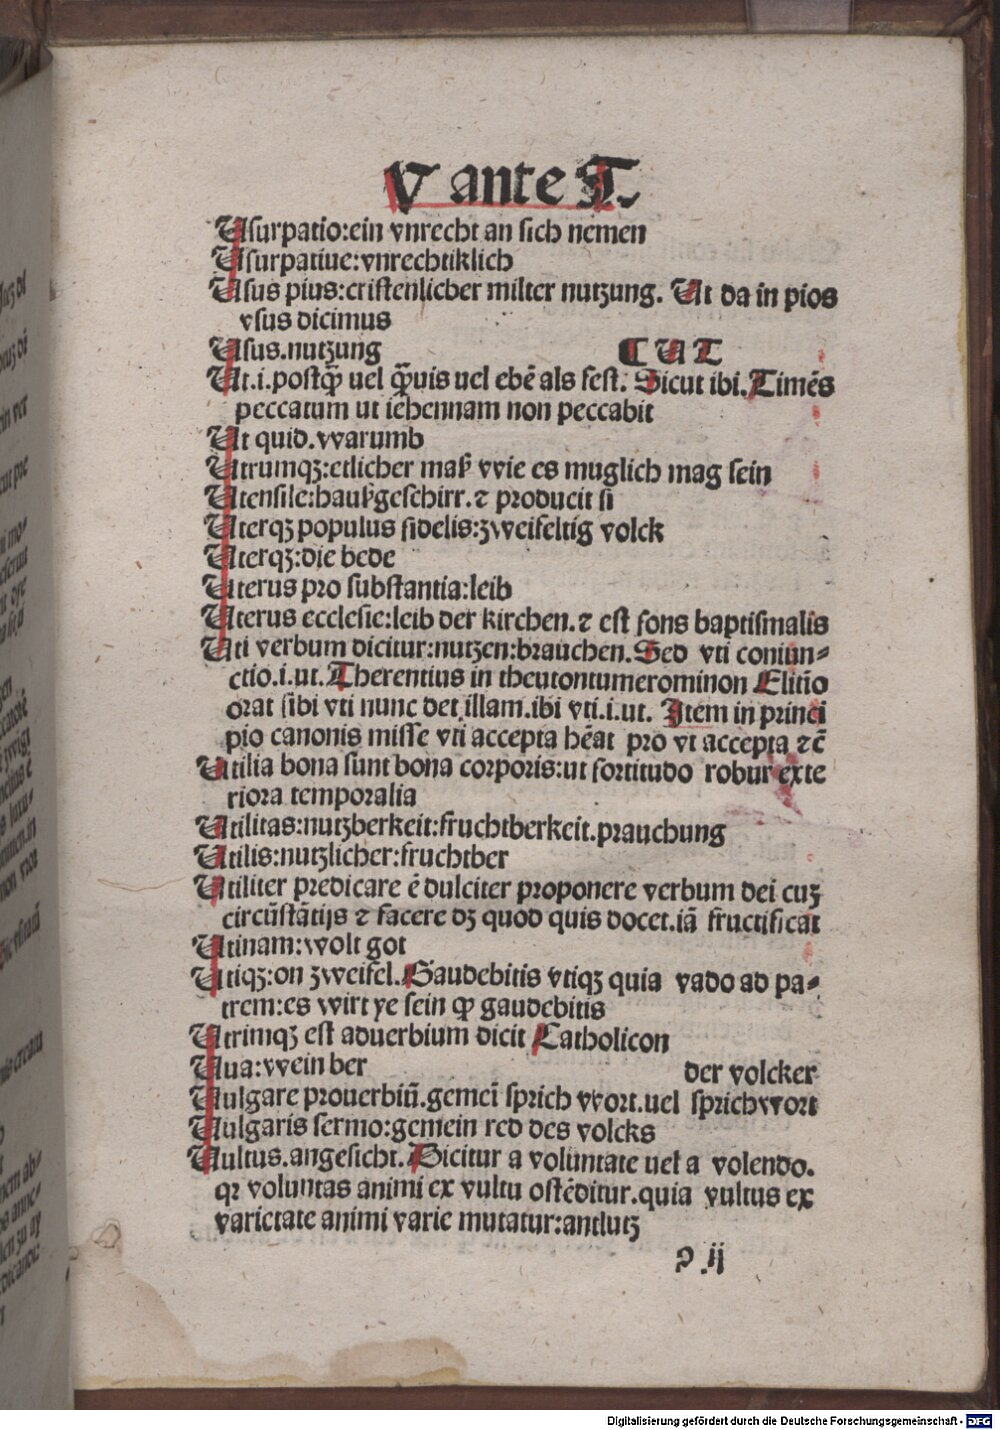 V ante T.
Usurpatio:ein vnrecht an sich nemen
Usurpatiue:vnrechtiklich
Usus pius:cristenlicher milter nutzung. Ut da in pios
vsus dicimus
Usus.nutzung ¶ U T
Ut.i.postꝙ̃ uel ꝙ̃uis uel ebẽ als fest. Sicut ibi. Timẽs
peccatum ut iehennam non peccabit
Ut quid.warumb
Utrumqꝫ:etlicher maß wie es muglich mag sein
Utensile:haußgeschirr.⁊ producit si
Uterqꝫ populus fidelis:zweifeltig volck
Uterqꝫ:die bede
Uterus pro substantia:leib
Uterus ecclesie:leib der kirchen.⁊ est fons baptismalis
Uti verbum dicitur:nutzen:brauchen. Sed vti coniun⸗
ctio.i.ut. Therentius in theutontumerominon Elitio
orat sibi vti nunc det illam.ibi vti.i.ut. Item in princi
pio canonis misse vti accepta hẽat pro vt accepta ⁊c̃
Utilia bona sunt bona corporis:ut fortitudo robur exte
riora temporalia
Utilitas:nutzberkeit:fruchtberkeit.prauchung
Utilis:nutzlicher:fruchtber
Utiliter predicare ẽ dulciter proponere verbum dei cuꝫ
circũstãtijs ⁊ facere dꝫ quod quis docet.iã fructificat
Utinam:wolt got
Utiqꝫ:on zweifel. Gaudebitis vtiqꝫ quia vado ad pa⸗
trem:es wirt ye sein ꝙ gaudebitis
Utrimqꝫ est aduerbium dicit Catholicon
Uua:wein ber der volcker
Uulgare prouerbiũ.gemeĩ sprich wort.uel sprichwort
Uulgaris sermo:gemein red des volcks
Uultus.angesicht. Dicitur a voluntate uel a volendo.
qꝛ voluntas animi ex vultu ostẽditur.quia vultus ex
varietate animi varie mutatur:antlutz
ij
Digitalisierung gefördert durch die Deutsche Forschungsgemeinschaft - DFG